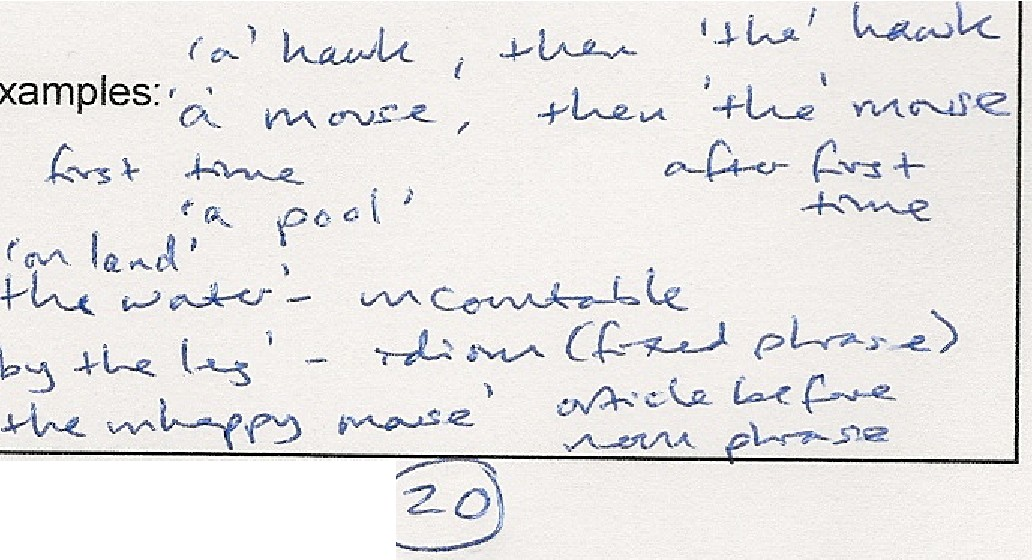 'a' hawk, then 'the' hawk
xamples: 'a' mouse, then 'the' mouse
first time after first
time
'a pool'
'on land'
the water' - uncountable
by the leg' - idiom (fixed phrase)
the unhappy mouse' article before
noun phrase
20